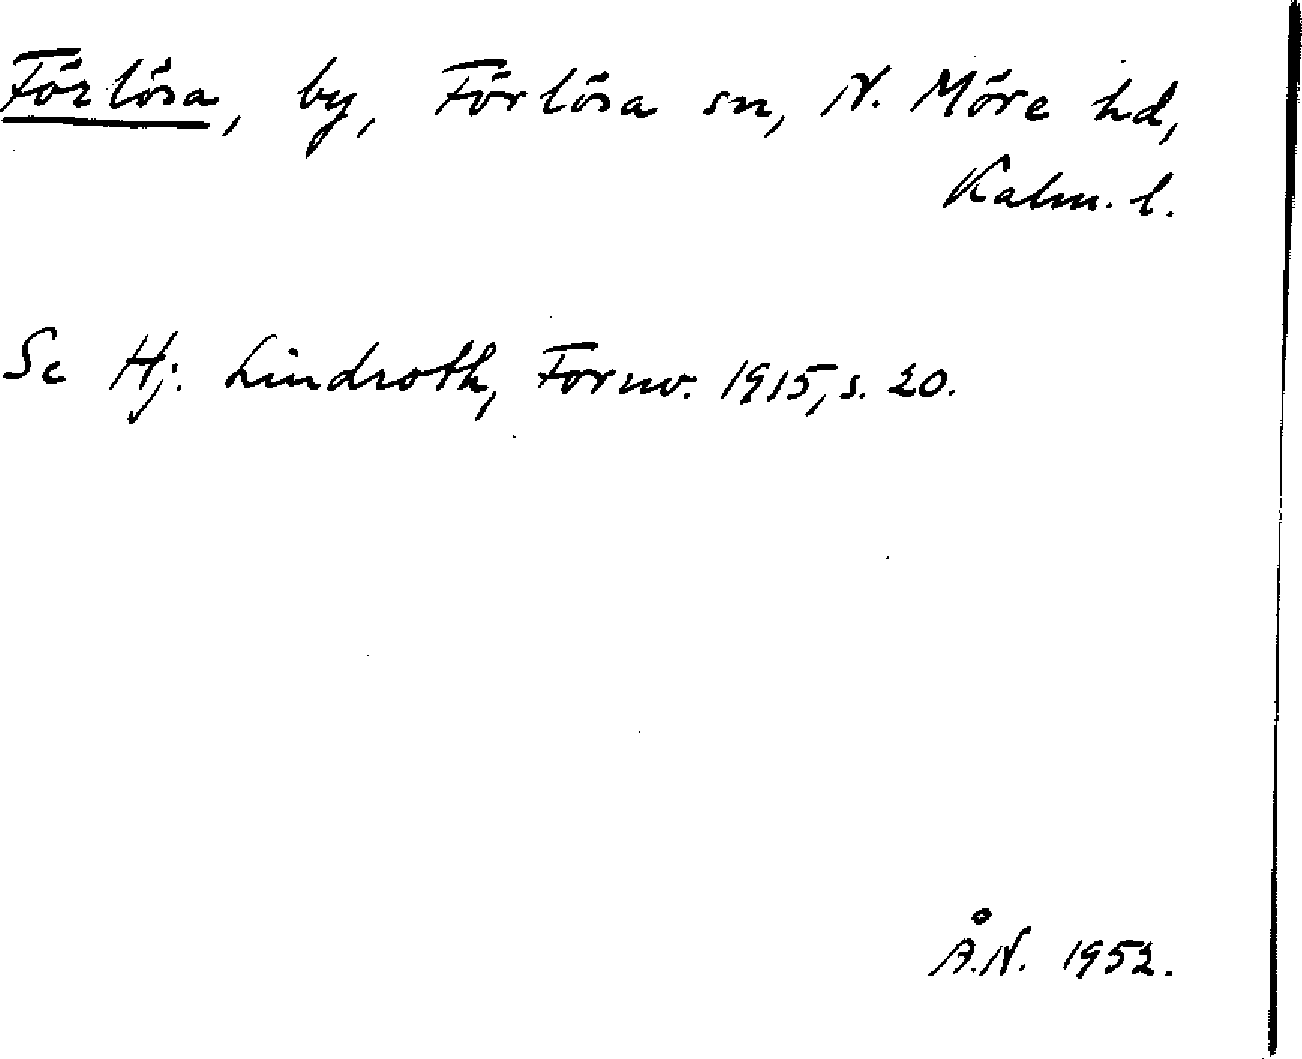 Förlösa, by, Förlösa sn, N. Möre hd,
Kalm. l.
Se Hj. Lindroth, Fornv. 1915, s. 20.
Å.N. 1952.